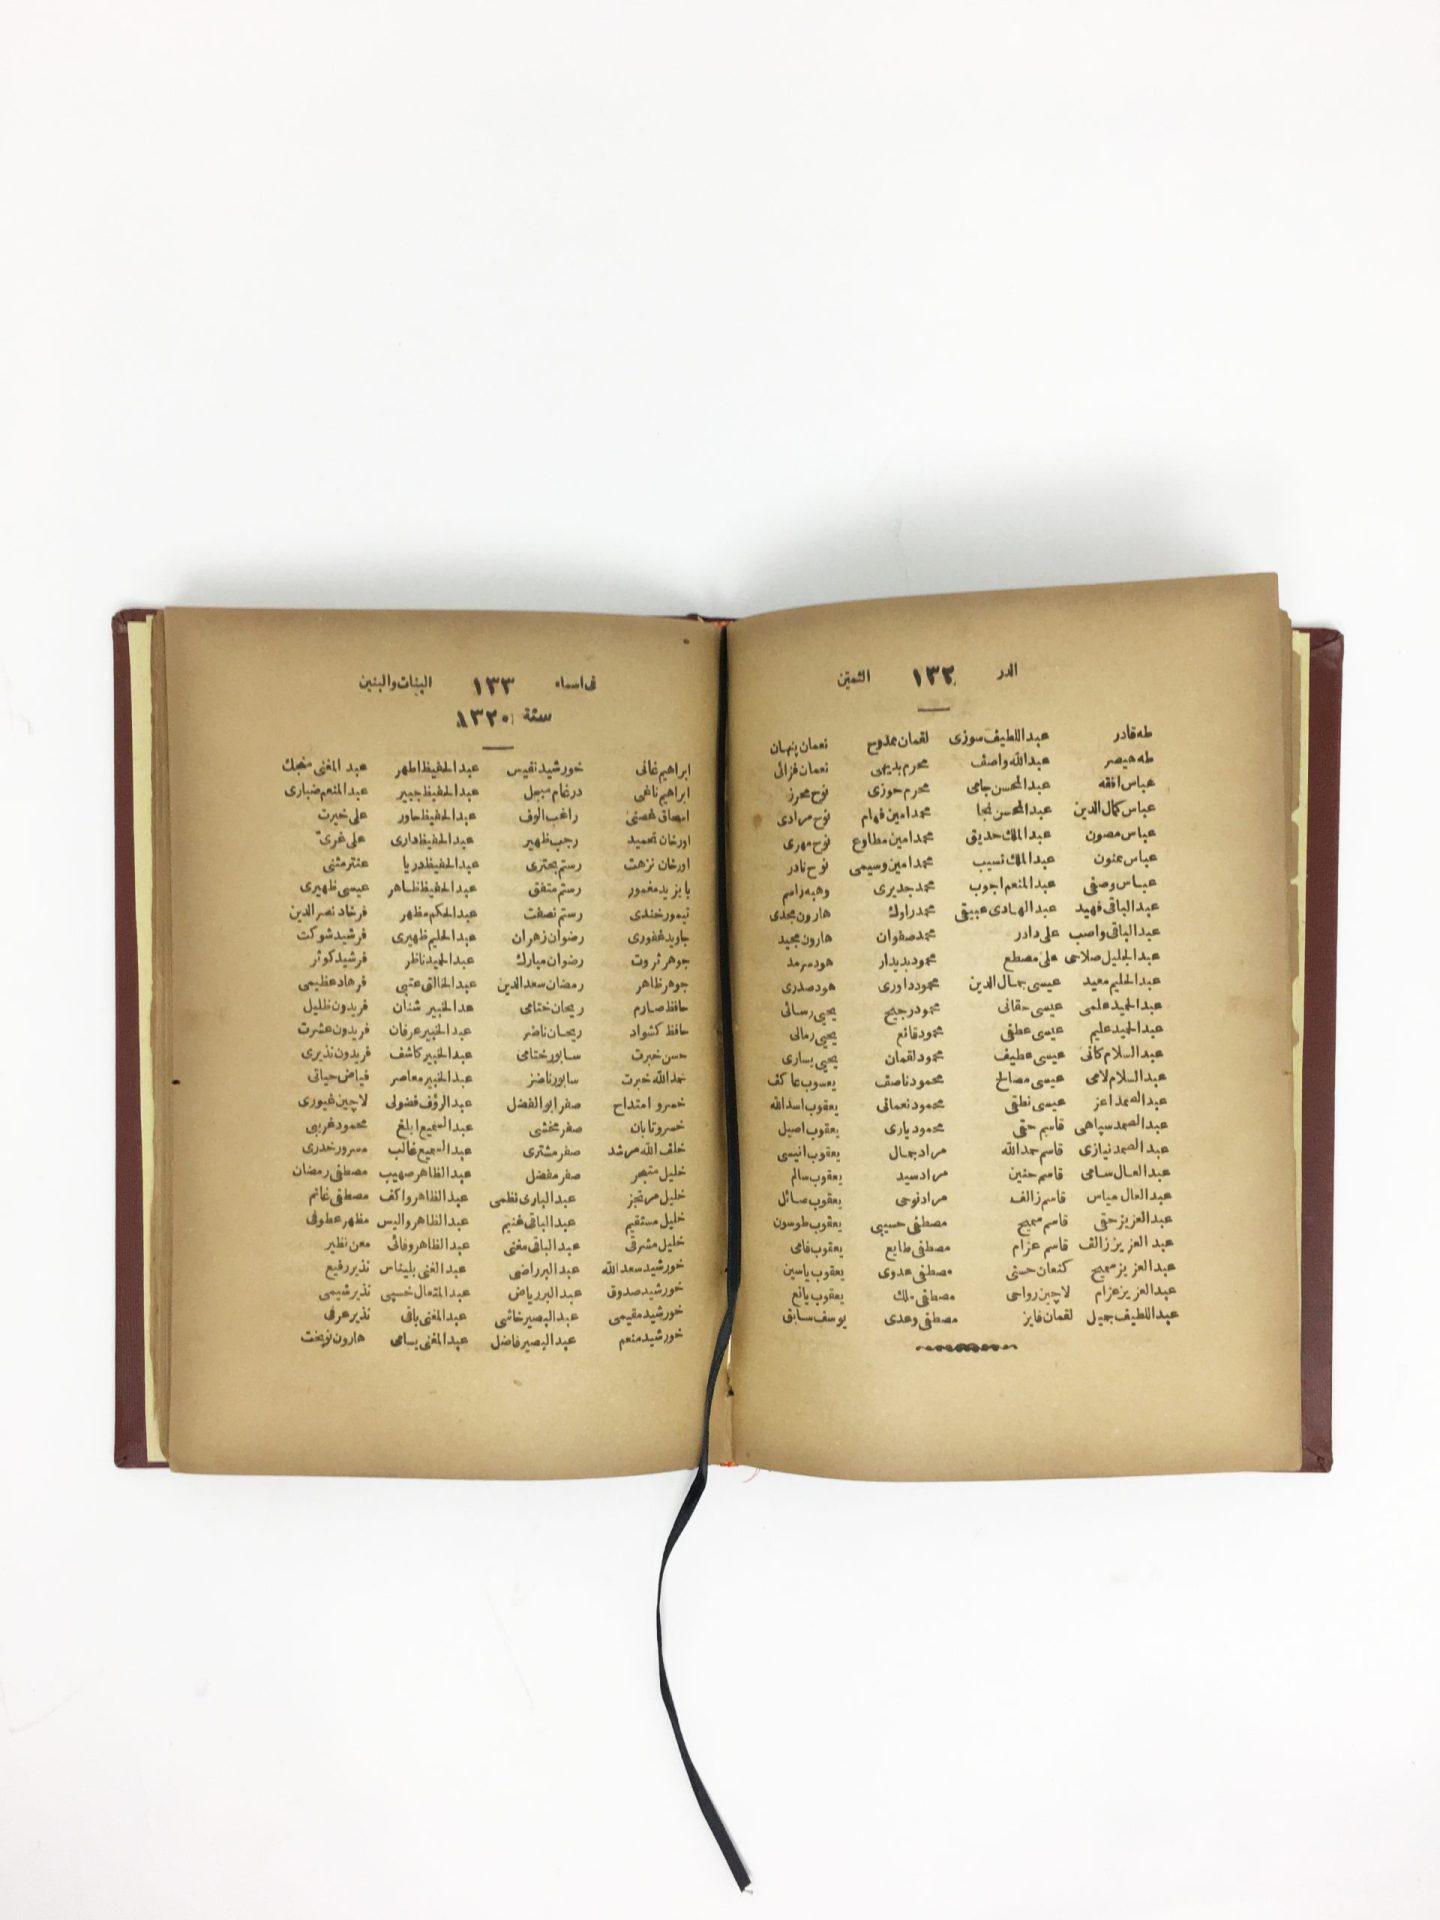 الدر ١٣٢ الثمين
طه قادر عبد اللطيف سوزى لقمان ممدوح نعمان پنهان
طه هيصر عبد الله واصف محرم بديهى نعمان فزائى
عباس افقه عبد المحسن جامى محرم حوزى نوح محرز
عباس كمال الدين عبد المحسن نجا محمد امين فهام نوح مرادى
عباس مصون عبد الملك حديق محمد امين مطاوع نوح مهرى
عباس ممنون عبد الملك نسيب محمد امين وسيمى نوح نادر
عباس وصفى عبد المنعم اجوب محمد جديرى وهبه زاسم
عبد الباقى فهيد عبد الهادى عبيقى محمد راوك هارون مجدى
عبد الباقى واصب على دادر محمد صفوان هارون مجيد
عبد الجليل صلاحى على مصطع محمود بديدار هود سرمد
عبد الحليم معيد عيسى جمال الدين محمود داورى هود صدرى
عبد الحميد علمى عيسى حقانى محمود رجيح يحيى رسائى
عبد الحميد عليم عيسى عطفى محمود قانع يحيى رمالى
عبد السلام كانى عيسى عطيف محمود لقمان يحيى يسارى
عبد السلام لامى عيسى مصالح محمود ناصف يعسوب عاكف
عبد الصمد اعز عيسى نطقى محمود نعمانى يعقوب اسد الله
عبد الصمد سپاهى قاسم حقى محمود يارى يعقوب اصيل
عبد الصمد نيازى قاسم حمد الله مراد جمال يعقوب انيسى
عبد العال سامى قاسم حنين مراد سيد يعقوب سالم
عبد العال مياس قاسم زالف مراد نوحى يعقوب صائل
عبد العزيز حقى قاسم سميح مصطفى حسيبى يعقوب طوسون
عبد العزيز زالف قاسم عزام مصطفى طايع يعقوب فامى
عبد العزيز سميح كنعان حسنى مصطفى عدوى يعقوب ياسين
عبد العزيز عزام لاچين رواحى مصطفى ملك يعقوب يانع
عبد اللطيف جميل لقمان فايز مصطفى وعدى يوسف سابق
فى اسماء ١٣٣ البنات والبنين
سنة ١٣٢٠
ابراهيم غانى خورشيد نفيس عبد الحفيظ اطهر عبد المغنى منجك
ابراهيم ناغى درغام مبجل عبد الحفيظ جبير عبد المنعم ضبارى
اسحاق غصنى راغب الوف عبد الحفيظ حاور على خيرت
اورخان تحميد رجب ظهير عبد الحفيظ دارى على غرى
اورخان نزهت رستم بحترى عبد الحفيظ دريا عنتر مثنى
بايزيد مغمور رستم متفق عبد الحفيظ ظاهر عيسى ظهيرى
تيمور خندى رستم نصفت عبد الحكم مظهر فرشاد نصر الدين
جاويد غفورى رضوان زهران عبد الحليم ظهيرى فرشيد شوكت
جوهر ثروت رضوان مبارك عبد الحميد ناظر فرشيد كوثر
جوهر ظاهر رمضان سعد الدين عبد الخالق عتبى فرهاد عظيمى
حافظ صارم ريحان ختامى عبد الخبير شنان فريدون ظليل
حافظ كشواد ريحان ناضر عبد الخبير عرفان فريدون عشرت
حسن خبرت سابور ختامى عبد الخبير كاشف فريدون نذيرى
حمد الله خبرت سابور ناضز عبد الخبير معاصر فياض حياتى
خسرو امتداح صفر ابو الفضل عبد الرؤف فضولى لاچين غيورى
خسرو تابان صفر مخشى عبد السميع ابلغ محمود غريبى
خلف الله مرشد صفر مشترى عبد السميع غالب مسرور خدرى
خليل متبصر صفر مفضل عبد الظاهر صهيب مصطفى رمضان
خليل مرتجز عبد البارى نظمى عبد الظاهر واكف مصطفى غانم
خليل مستقيم عبد الباقى غنيم عبد الظاهر واليس مظهر عطوفى
خليل مشرقى عبد الباقى مغنى عبد الظاهر وفائى معن نظير
خورشيد سعد الله عبد البر راضى عبد الغنى بليناس نذير رفيع
خورشيد صدوق عبد البر رياض عبد المتعال خسپى نذير شيمى
خورشيد مقيمى عبد البصير خاشى عبد المغنى باقى نذير عرفى
خورشيد منعم عبد البصير فاضل عبد المغنى بسامى هارون نوبخت